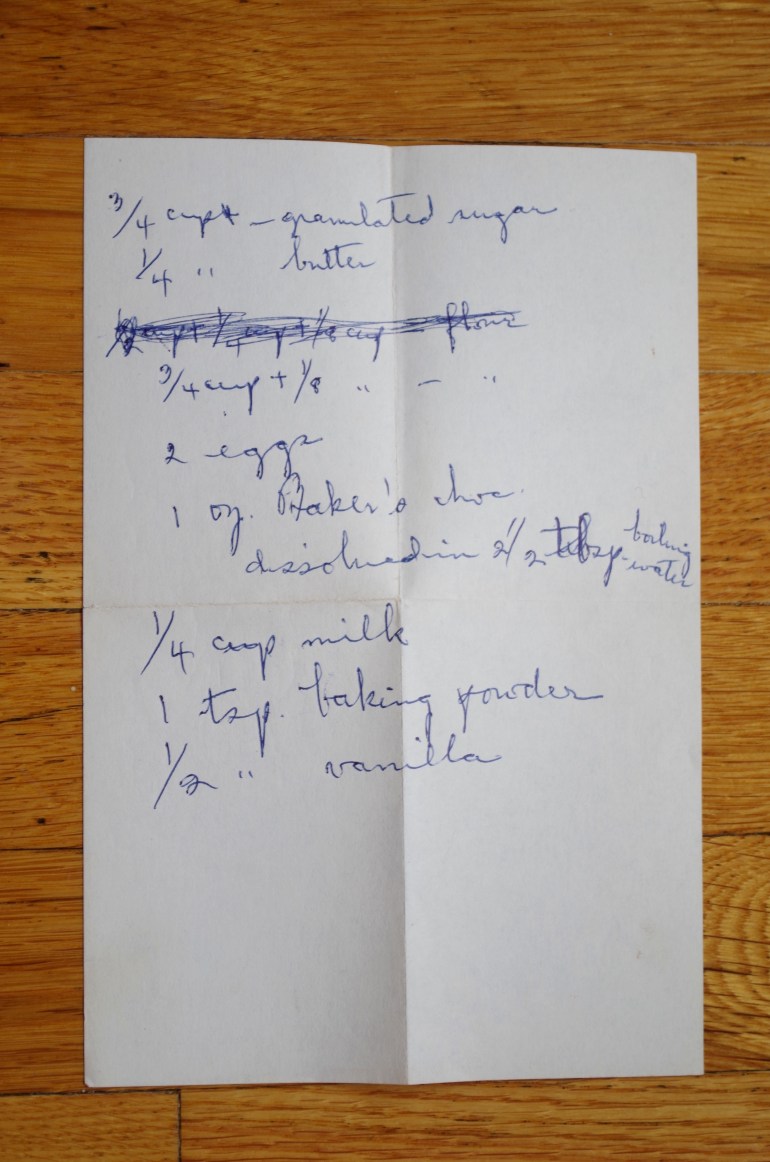 3/4 cup - granulated sugar
1/4 " butter
1/2 cup + 1/4 cup + 1/8 cup - flour
3/4 cup + 1/8 " - "
2 eggs
1 oz. Baker's choc.
dissolved in 2 1/2 tbsp. boiling water
1/4 cup milk
1 tsp. baking powder
1/2 " vanilla